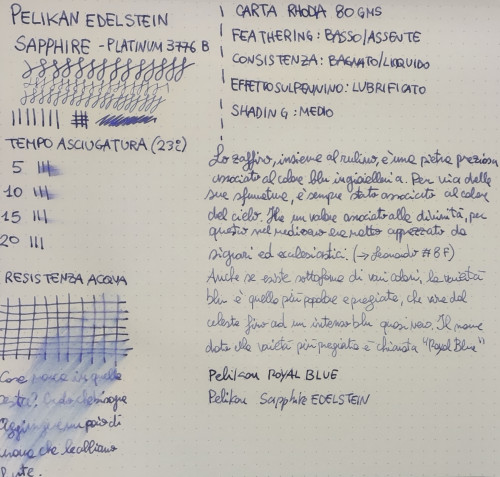 PELIKAN EDELSTEIN
SAPPHIRE - PLATINUM 3776 B
TEMPO ASCIUGATURA (23°)
5
10
15
20
RESISTENZA ACQUA
CARTA RHODIA 80 GMS
FEATHERING: BASSO/ASSENTE
CONSISTENZA: BAGNATO/LIQUIDO
EFFETTO SUL PENNINO: LUBRIFICATO
SHADING: MEDIO
Lo zaffiro, insieme al rubino, è una pietra preziosa
associato al colore blu in gioielleria. Per via delle
sue sfumature, è sempre stato associato al colore
del cielo. Ha un valore associato alle divinità, per
questo nel medioevo era molto apprezzato da
signori ed ecclesiastici. (→ Leonardo #8F)
Anche se esiste sottoforma di vari colori, la varietà
blu è quella più popolare e pregiata, che va dal
celeste fino ad un intenso blu quasi nero. Il nome
dato alla varietà più pregiata è chiamata "Royal Blue"
Pelikan ROYAL BLUE
Pelikan Sapphire EDELSTEIN